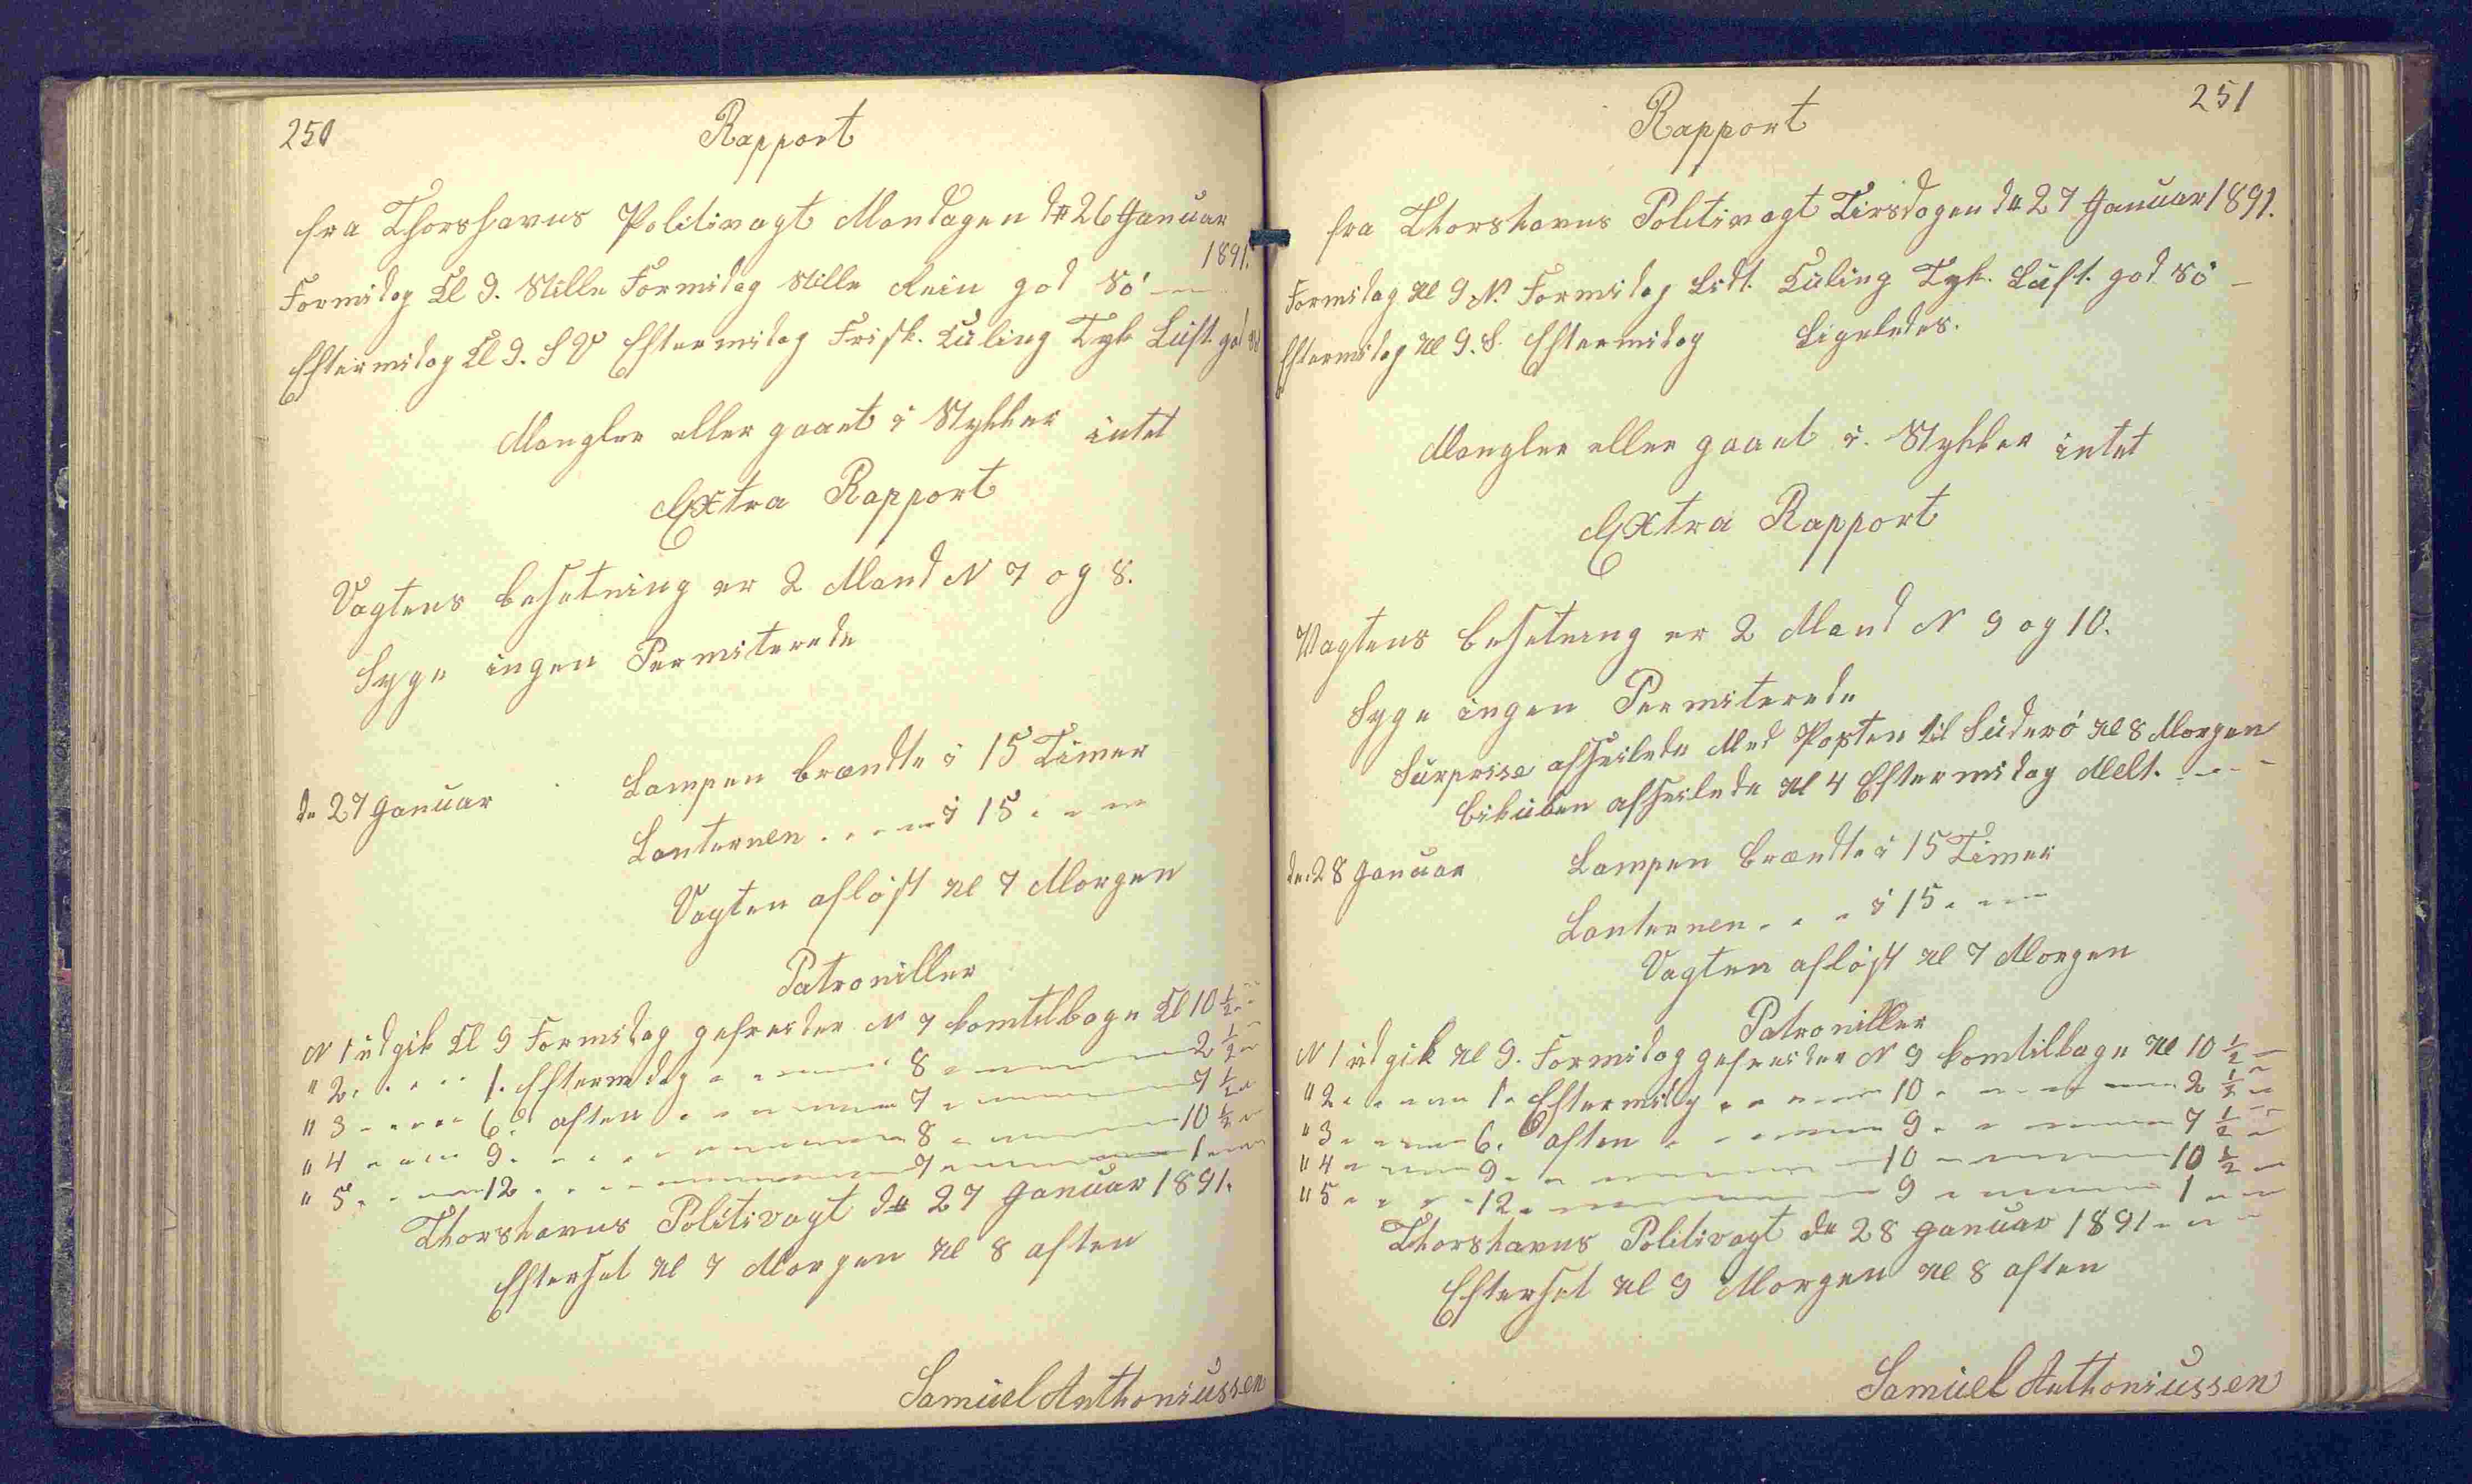 250
Rapport
fra Thorshavns Politivagt Mandagen d 26 Januar
1891.
Formidag Kl 9. Stille Formidag Stille Rein god Sö
Eftermidag Kl 9. S V Eftermidag Frisk. Kuling Tyk Luft god Sö
Mangler eller gaaet i Stykker intet
Extra Rapport
Vagtens besetning er 2 Mand N 7 og 8.
Syge ingen Permiterede
d 27 Januar Lampen brændte i 15 Timer
Lanternen " " " i 15 " " "
Vagten aflöst Kl 7 Morgen
Patroniller
N 1 udgik Kl 9 Formidag gefreider N 7 komtilbage Kl 10 ½ "
" 2 " " " " 1. Eftermidag " " " " 8 " " " 2 ½ "
" 3 " " " " 6. aften " " " " 7 " " " 7 ½ "
" 4 " " " " 9. " " " " 8 " " " 10 ½ "
" 5 " " " 12 " " " " 7 " " " 1 " "
Thorshavns Politivagt d 27 Januar 1891.
Efterset Kl 7 Morgen Kl 8 aften
Samuel Anthoniussen
251
Rapport
fra Thorshavns Politivagt Tirsdagen d 27 Januar 1891.
Formidag Kl 9 N. Formidag Lidt. Kuling Tyk. Luft. god Sö
Eftermidag Kl 9. S. Eftermidag Ligeledes.
Mangler eller gaaet i. Stykker intet
Extra Rapport
Vagtens besetning er 2 Mand N 9 og 10.
Syge ingen Permiterede
Surprise afseilede Med Posten til Suderö Kl 8 Morgen
bikuben afseilede Kl 4 Eftermidag Melt.
d. 28 Januar Lampen brændte i 15 Timer
Lanternen " " " i 15 " "
Vagten aflöst Kl 7 Morgen
Patroniller
N 1 udgik Kl 9. Formidag gefreider N 9 komtilbage Kl 10 ½ "
" 2 " " " 1. Eftermidag " " " " 10 " " " 2 ½ "
" 3 " " " 6. aften " " " " 9 " " " 7 ½ "
" 4 " " " 9 " " " " 10 " " " 10 ½ "
" 5 " " " 12 " " " " 9 " " " 1 " "
Thorshavns Politivagt d 28 Januar 1891 " " "
Efterset Kl 9 Morgen Kl 8 aften
Samuel Anthoniussen